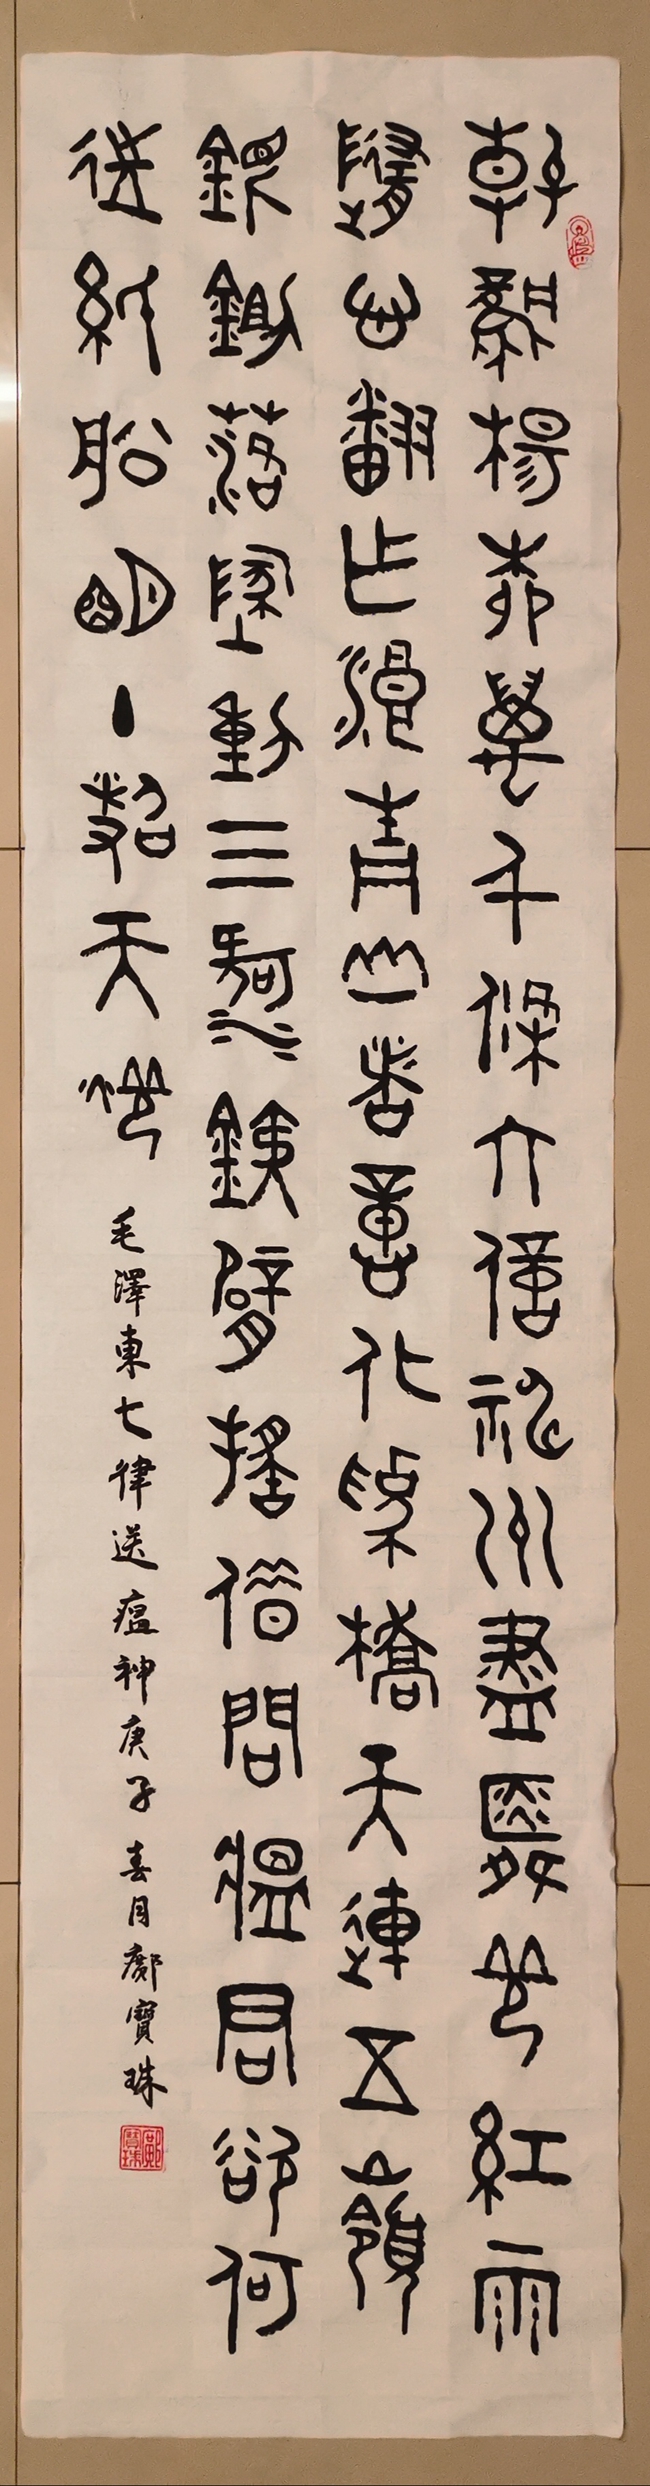 春風楊柳萬千條六億神州盡舜堯紅雨
隨心翻作浪青山著意化為橋天連五嶺
銀鋤落地動三河鐵臂搖借問瘟君欲何
往紙船明燭照天燒
毛澤東七律送瘟神庚子春月鄺寶珠
鄺寶珠